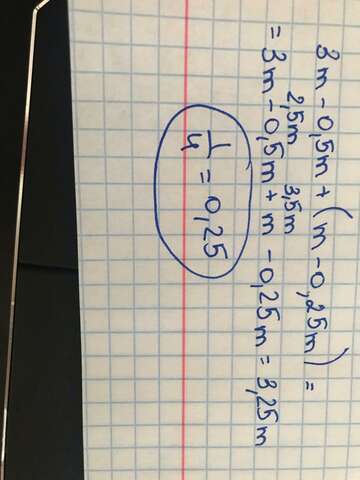 3m - 0,5m + (m - 0,25m) =
2,5m 3,5m
= 3m - 0,5m + m - 0,25m = 3,25m
1/4 = 0,25